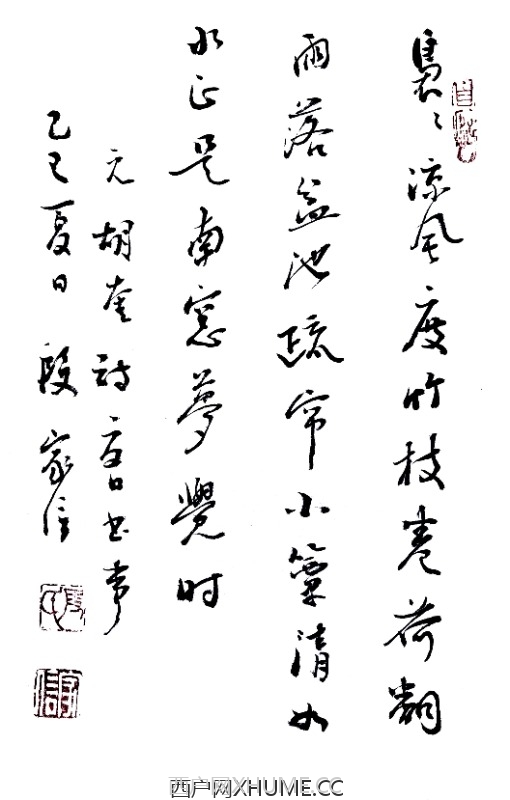 裊〻凉风度竹枝卷荷翻
雨落盆池疏帘小簟清如
水正是南窓夢覺时
元胡奎诗夏日书事
乙巳夏日段家信
西户网XHUME.CC